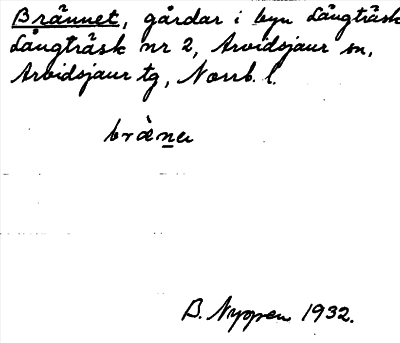 Brännet, gårdar i byn Långträsk
Långträsk nr 2, Arvidsjaur sn,
Arvidsjaur tg, Norrb. l.
brä̀na
B. Nyppen 1932.